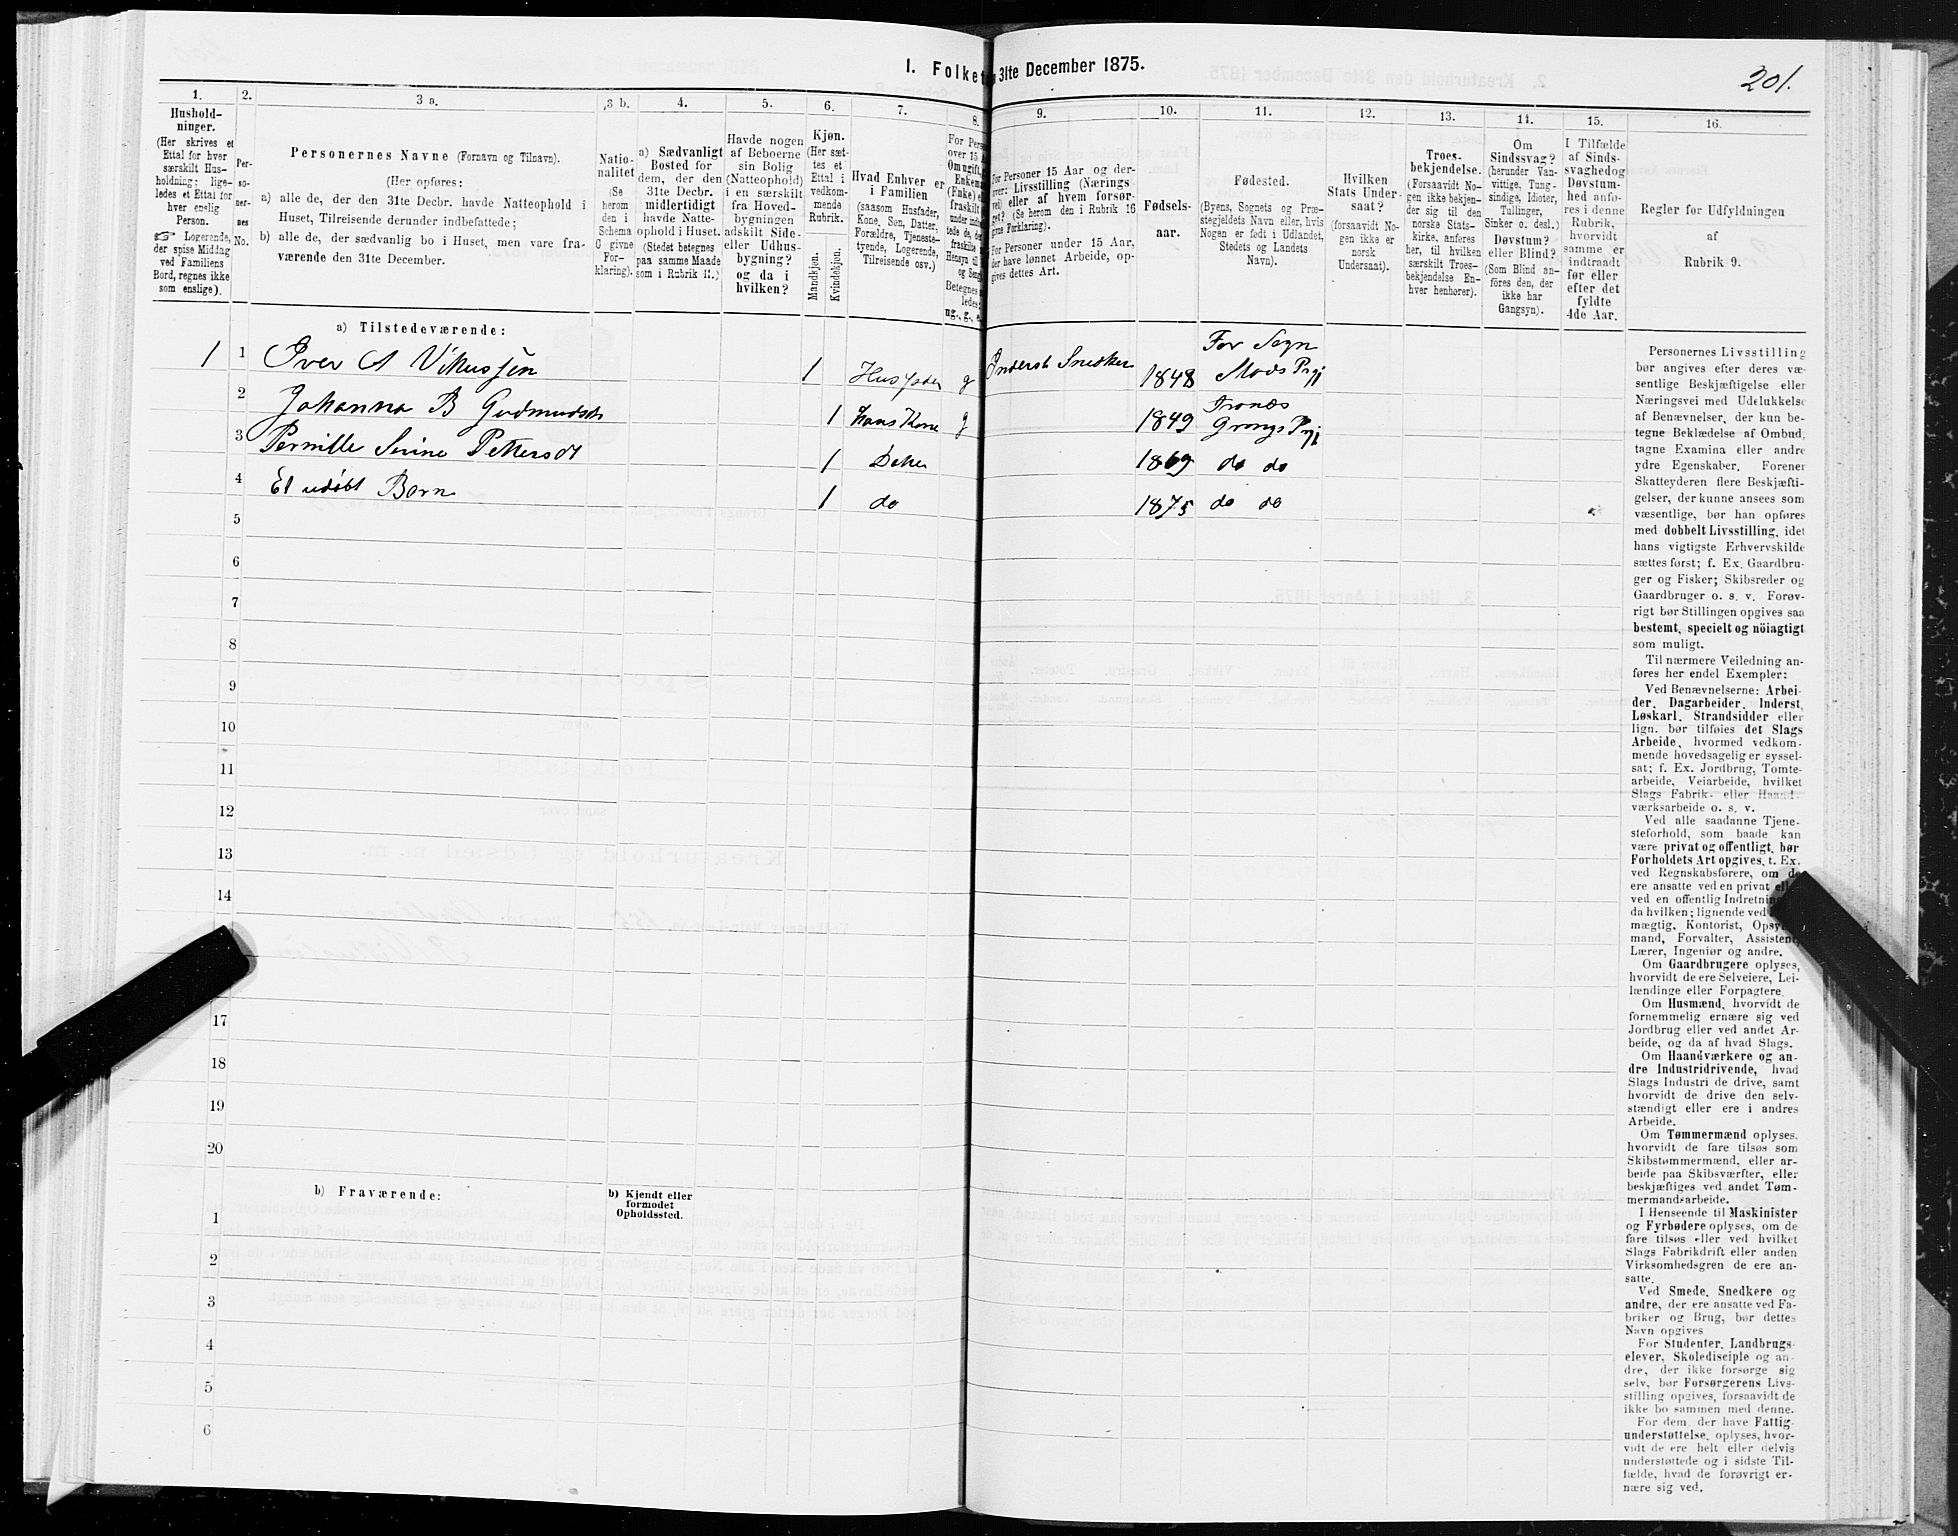 1. Folket
31te December 1875.
201.
1.
Hushold-
ninger.
(Her skrives et
Ettal for hver
særskilt Hus-
holdning; lige-
ledes et Ettal for
hver enslig
Person.
☞ Logerende,
der spise Middag
ved Familiens
Bord, regnes ikke
som enslige).
2.
Per-
so-
ner-
nes
No.
3 a.
Personernes Navne (Fornavn og Tilnavn).
(Her opføres:
a) alle de, der den 31te Decbr. havde Natteophold i
Huset, Tilreisende derunder indbefattede;
b) alle de, der sædvanlig bo i Huset, men vare fra-
værende den 31te December.
3 b.
Natio-
nalitet
(Se
herom
den i
Schema
C givne
For-
klaring).
4.
a) Sædvanligt
Bosted for
dem, der den
31te Decbr.
midlertidigt
havde Natte-
ophold i Huset.
(Stedet betegnes
paa samme Maade
som i Rubrik 11.)
5.
Havde nogen
af Beboerne
sin Bolig
(Natteophold)
i en særskilt
fra Hoved-
bygningen
adskilt Side-
eller Udhus-
bygning?
og da i
hvilken?
6.
Kjøn.
(Her sæt-
tes et
Ettal i
vedkom-
mende
Rubrik.
Mandkjøn.
Kvindekjøn.
7.
Hvad Enhver er
i Familien
(saasom Husfader,
Kone, Søn, Datter,
Forældre, Tjeneste-
tyende, Logerende,
Tilreisende osv.)
8.
For Pers
over 15 A
Om ugift,
Enkema
(Enke) e
fraskilt
9.
For Personer 15 Aar og der-
over: Livsstilling (Nærings
vei) eller af hvem forsør-
get? (Se herom den i Rubrik 16
givne Forklaring).
For Personer under 15 Aar,
der have lønnet Arbeide, op-
gives dettes Art.
10.
Fødsels-
aar.
11.
Fødested.
(Byens, Sognets og Præ-
stegjeldets Navn eller, hvis
Nogen er født i Udlandet,
Stedets og Landets
Navn).
12.
Hvilken
Stats Under-
saat?
(forsaavidt No-
gen ikke er
norsk
Undersaat).
13.
Troes-
bekjendelse.
(Forsaavidt No-
gen ikke bekjen-
der sig til den
norske Stats-
kirke, anføres
her, til hvilken
særskilt Troes-
bekjendelse En-
hver henhører).
14.
Om
Sindssvag?
(herunder Van-
vittige, Tung-
sindige, Idioter,
Tullinger,
Sinker o. desl.)
Døvstum?
eller Blind?
(Som Blind an-
føres den, der
ikke har
Gangsyn).
15.
I Tilfælde
af Sinds-
svaghed og
Døvstum-
hed anfø-
res i denne
Rubrik,
hvorvidt
samme er
indtraadt
før eller
efter det
fyldte
4de Aar.
16.
Regler for Udfyldningen
af
Rubrik 9.
a) Tilstedeværende:
1 1 Iver A Vikussen 1 Husfader g Inderst Snedker 1848 For Sogn Mods Prgj
2 Johanna B Gudmundsdt 1 hans Kone g 1849 Tronæs Grongs Prgj
3 Pernille Serine Pettersdt 1 Datter 1869 do do
4 Et udöbt Barn 1 do 1875 do do
5
6
7
8
9
10
11
12
13
14
17
18
19
20
b) Fraværende:
b) Kjendt eller
formodet
Opholdssted.
1
2
3
4
5
6
Personernes Livsstilling
bør angives efter deres væ-
sentlige Beskjæftigelse eller
Næringsvei med Udelukkelse
af Benævnelser, der kun be-
tegne Beklædelse af Ombud,
tagne Examina eller andre
ydre Egenskaber. Forener
Skatteyderen flere Beskjæfti-
gelser, der kunne ansees som
væsentlige, bør han opføres
med dobbelt Livsstilling, idet
hans vigtigste Erhvervskilde
sættes først; f. Ex. Gaardbru-
ger og Fisker; Skibsreder og
Gaardbruger o. s. v. Forøv-
rigt bør Stillingen opgives saa
bestemt, specielt og nöiagtigt
som muligt.
Til nærmere Veiledning an-
føres her endel Exempler:
Ved Benævnelserne: Arbei-
der, Dagarbeider, Inderst,
Løskarl, Strandsidder eller
lign. bør tilføies det Slags
Arbeide, hvormed vedkom-
mende hovedsagelig er syssel-
sat; f. Ex. Jordbrug, Tomte-
arbeide, Veiarbeide, hvilket
Slags Fabrik- eller Haand-
værksarbeide o. s. v.
Ved alle saadanne Tjene-
steforhold, som baade kan
være privat og offentligt, bør
Forholdets Art opgives, t. Ex.
ved Regnskabsførere, om de
ere ansatte ved en privat el
ved en offentlig Indretning
da hvilken; lignende ved
mægtig, Kontorist, Opsy
mand, Forvalter, Assistent,
Lærer, Ingeniør og andre.
Om Gaardbrugere oplyses,
hvorvidt de ere Selveiere, Lei-
lændinge eller Forpagtere.
Om Husmænd, hvorvidt de
fornemmelig ernære sig ved
Jordbrug eller ved andet Ar-
beide, og da af hvad Slags.
Om Haandværkere og an-
dre Industridrivende, hvad
Slags Industri de drive, samt
hvorvidt de drive den selv-
stændigt eller ere i andres
Arbeide.
Om Tømmermænd oplyses,
hvorvidt de fare tilsøs som
Skibstømmermænd, eller ar-
beide paa Skibsværfter, eller
beskjæftiges ved andet Tøm-
mermandsarbeide.
I Henseende til Maskinister
og Fyrbødere oplyses, om de
fare tilsøs eller ved hvilket
Slags Fabrikdrift eller anden
Virksomhedsgren de ere an-
satte.
Ved Smede, Snedkere og
andre, der ere ansatte ved Fa-
briker og Brug, bør dettes
Navn opgives
For Studenter, Landbrugs-
elever, Skoledisciple og an-
dre, der ikke forsørge sig
selv, bør Forsørgerens Livs-
stilling opgives, forsaavidt de
ikke bo sammen med denne.
For dem, der have Fattig-
understøttelse, oplyses, hvor-
vidt de ere helt eller delvis
understøttede og i sidste Til-
fælde, hvad de forøvrigt er-
nære sig ved.